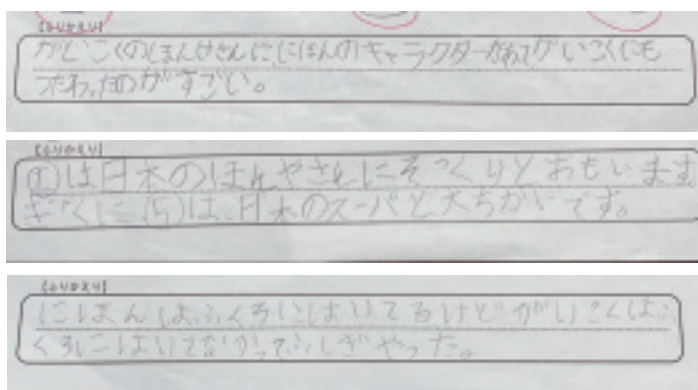 【ふりかえり】
がいこくのほんやさんににほんのキャラクターがあってがいこくにも
つたわったのがすごい。
【ふりかえり】
①は日本のほんやさんにそっくりとおもいます
ぎゃくに⑤は、日本のスーパと大ちがいです。
【ふりかえり】
にほんはふくろにはいてるけどがいこくはふ
くろにはいてなかってふしぎやった。